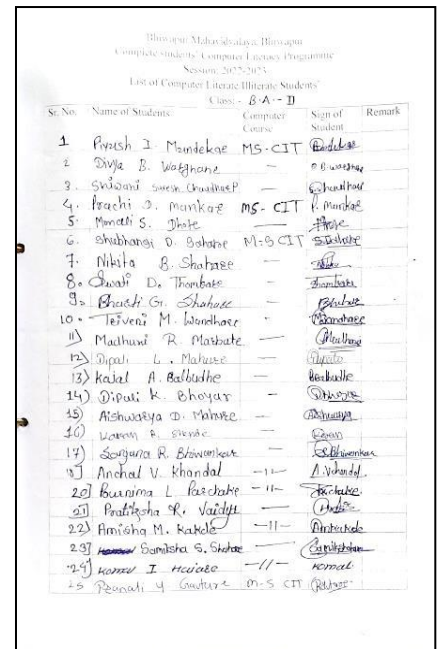 Bhiwapur Mahavidyalaya, Bhiwapur
Complete students' Computer Literacy Programme
Session: 2022-2023
List of Computer Literate Illiterate Students'
Class:- B-A-II
Sr. No. Name of Students Computer Course Sign of Student Remark
1 Piyush I. Mundekar MS-CIT
2 Divya B. Waghane — D.B.Waghane
3. Shivani Suresh Chaudhari — S. Chaudhari
4. Prachi D. Mankar MS-CIT P. Mankar
5. Monali S. Dhote — Dhote
6. Shubhangi D. Bahare M-S CIT S.D.Bahare
7. Nikita B. Shahare —
8. Swati D. Thombare — Thombare
9. Bhakti G. Shahare —
10. Triveni M. Wandhare
11) Madhuri R. Marbate —
12) Dipali L. Mahure — Dipali
13) Kajal A. Balbudhe — Balbudhe
14) Dipali K. Bhoyar —
15) Aishwarya D. Mahure — Aishwarya
16) Karan R. — Karan
17) Sanjana R. Bhivankar — Bhivankar
18] Anchal V. Khandal —11— A.V.Khandal
20] Burnima L Parchake —11— Parchake
21] Pratiksha R. Vaidya —
22] Amisha M. Kakde —11— Amkakde
23] Samiksha S. Shahare —
24] Komal I Hajare —//— Komal
25 Pranali Y Gauture M-S CIT